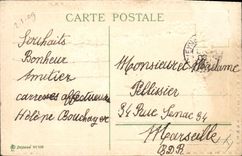 CARTE POSTALE
2-1-09
Souhaits
Bonheur
Amitiés
caresses affectueuses
Hélène Bouchayer
Monsieur et Madame
Pélissier
34 Rue Senac 34
Marseille
BDR